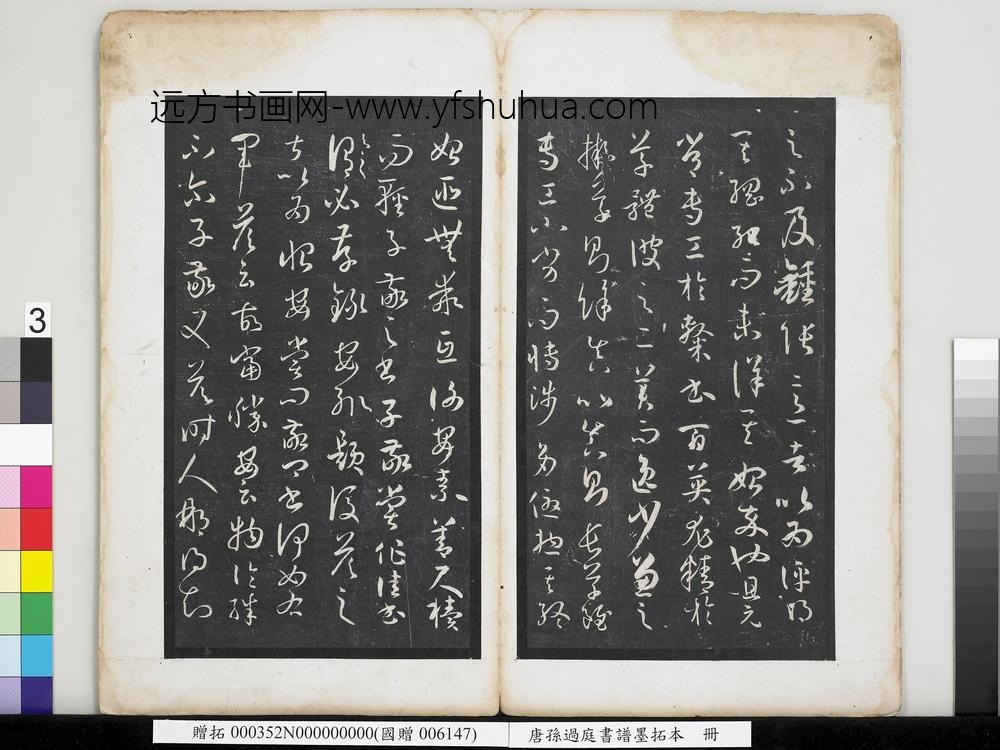 远方书画网-www.yfshuhua.com
之不及鍾張意者以為評得
其綱紀而未詳其始卒也且元
常專工於隸書百英尤精於
草體彼之二美而逸少兼之
擬草則餘真比真則長草雖
專工小劣而博涉多優摠其終
始匪無乖互謝安素善尺櫝
而輕子敬之書子敬嘗作佳書
與之謂必存錄安輒題後答之
甚以為恨安嘗問敬卿書何如右
軍答云故當勝安云物論殊
不爾子敬又答時人那得知
3
贈拓 000352N000000000(國贈 006147)
唐孫過庭書譜墨拓本 冊